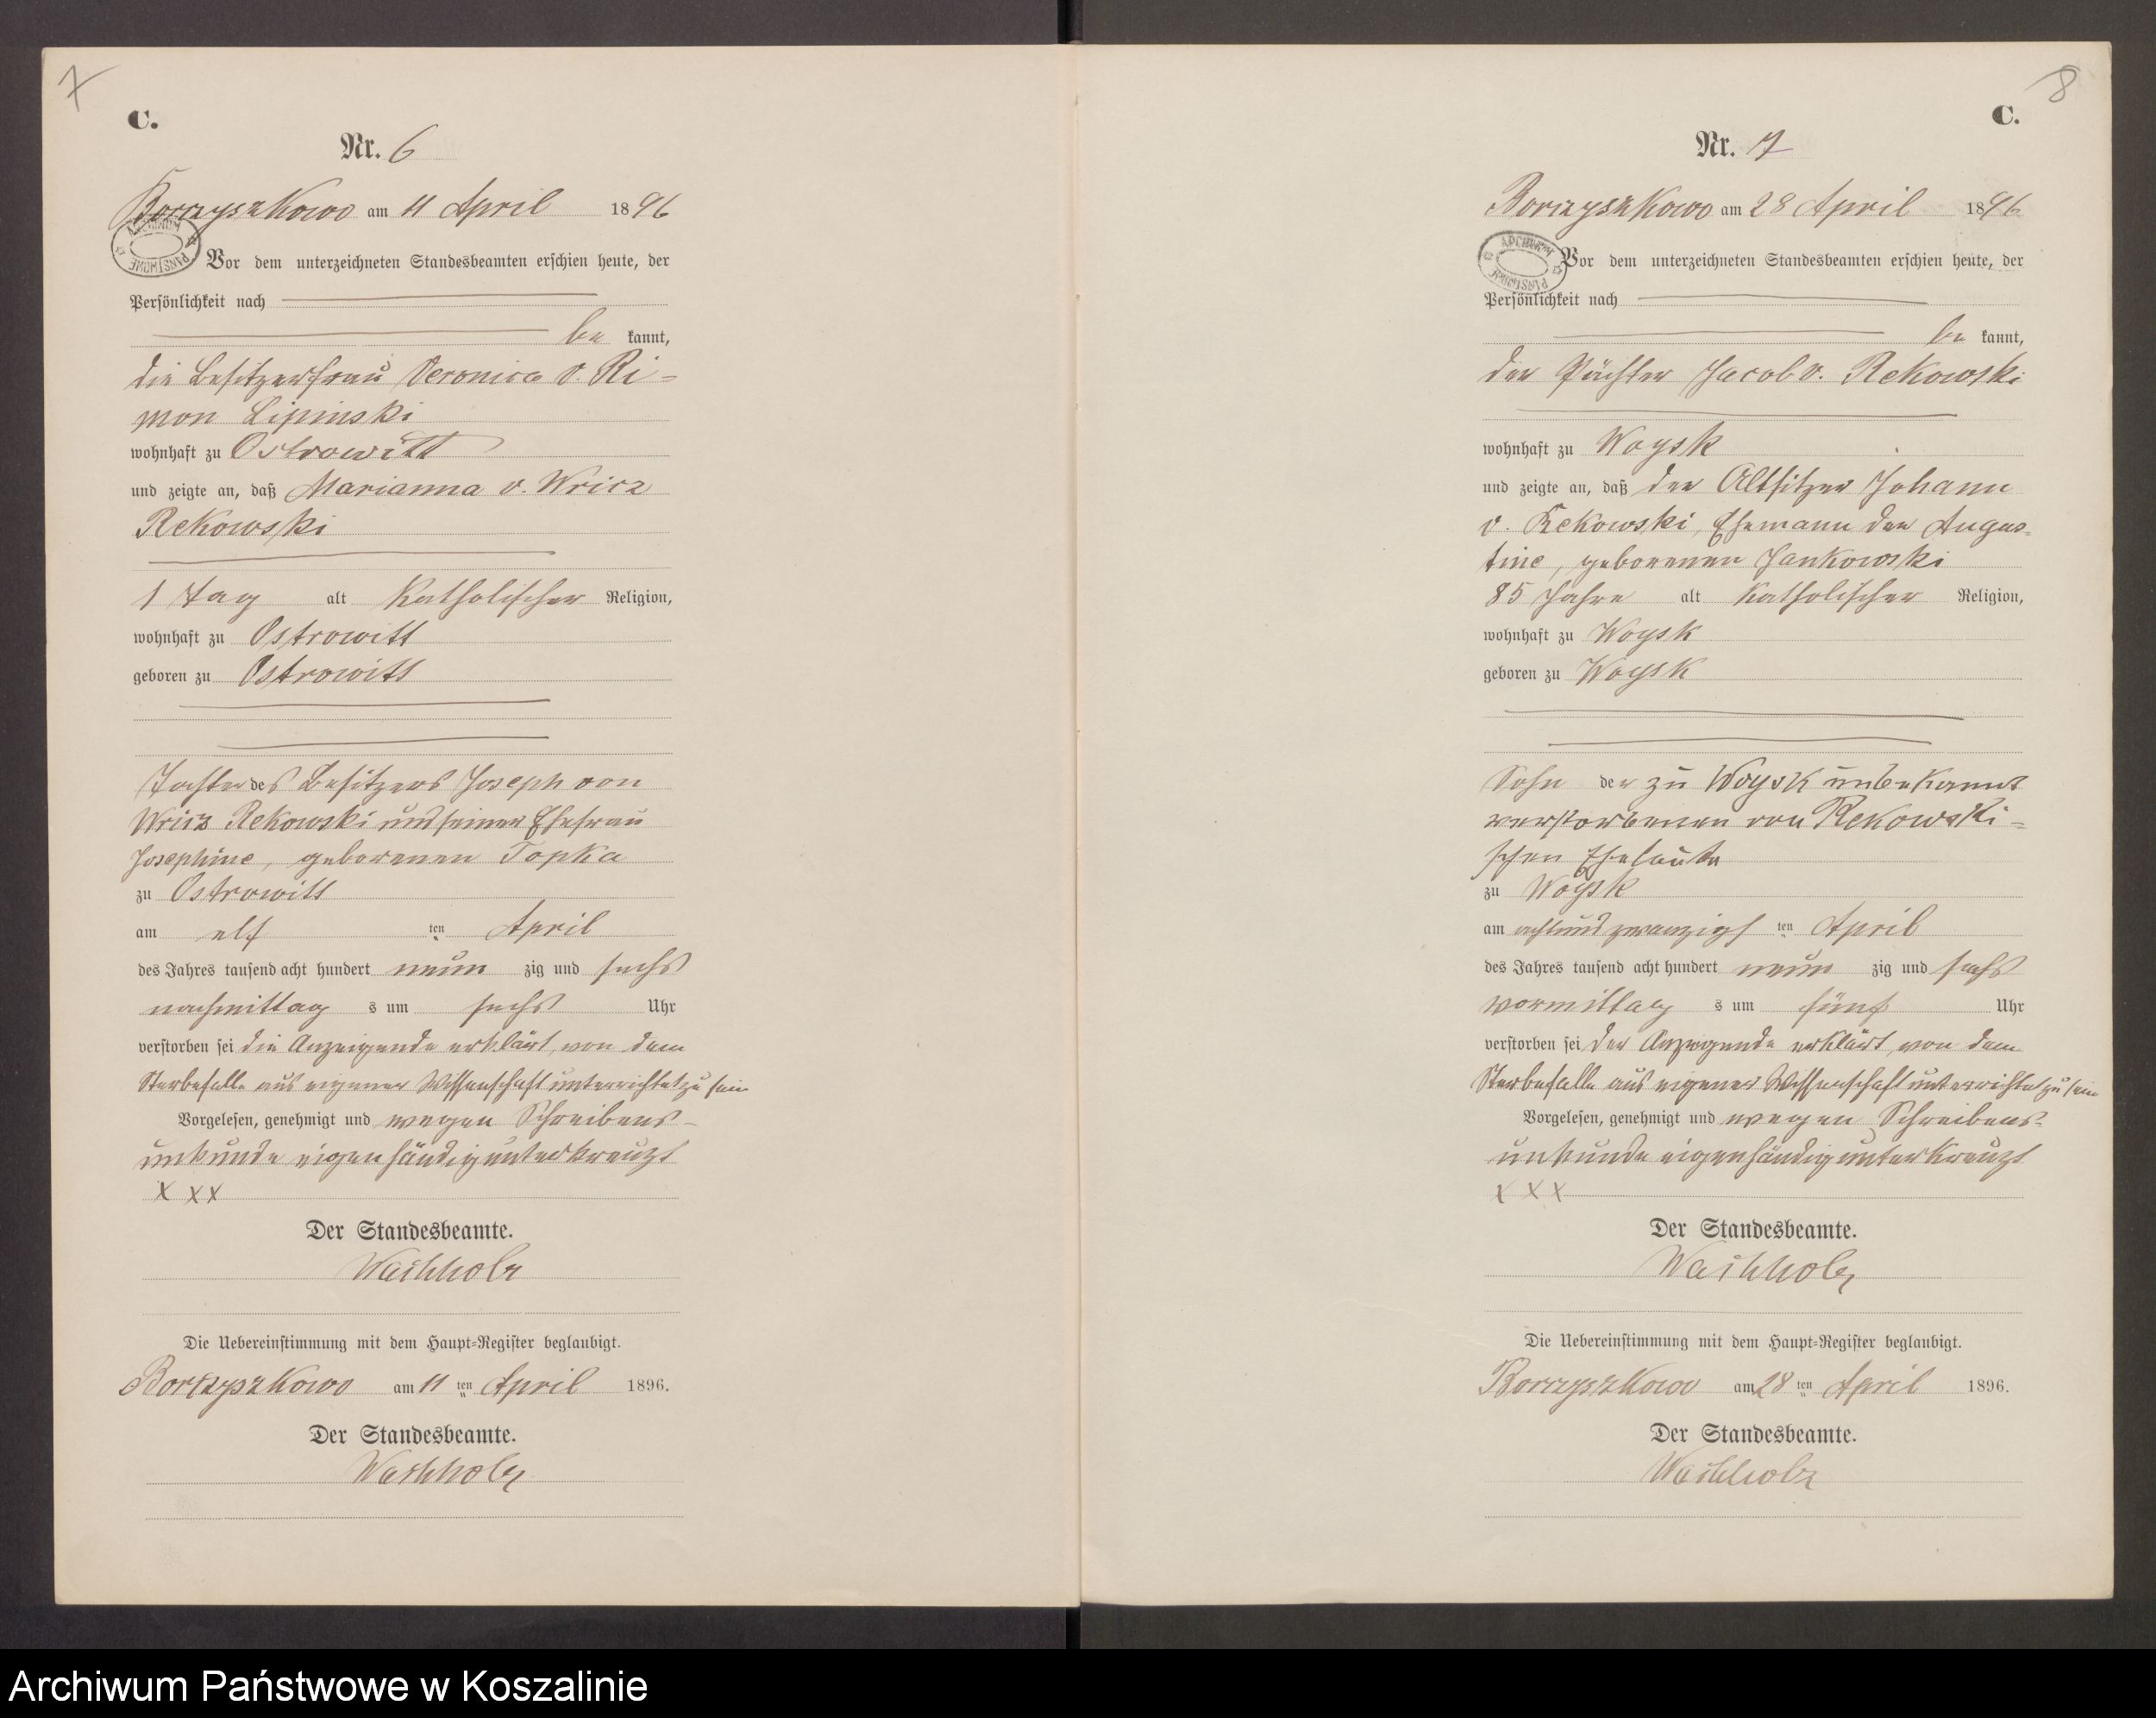 7
C.
Nr. 6
Borzyszkowo am 11 April 1896
ARCHIWUM PAŃSTWOWE
Vor dem unterzeichneten Standesbeamten erschien heute, der
Persönlichkeit nach
be kannt,
die Besitzerfrau Veronica v. Ri-
mon Lipinski
wohnhaft zu Ostrowitt
und zeigte an, daß Marianna v. Wricz
Rekowski
1 Tag alt katholischer Religion,
wohnhaft zu Ostrowitt
geboren zu Ostrowitt
Tochter des Besitzers Joseph von
Wricz Rekowski und seiner Ehefrau
Josephine, geborenen Topka
zu Ostrowitt
am elf ten April
des Jahres tausend acht hundert neun zig und sechs
nachmittag s um sechs Uhr
verstorben sei die Anzeigende erklärt, von dem
Sterbefalle aus eigener Wissenschaft unterrichtet zu sein
Vorgelesen, genehmigt und wegen Schreibens-
unkunde eigenhändig unterkreuzt
X X X
Der Standesbeamte.
Wachholz
Die Uebereinstimmung mit dem Haupt-Register beglaubigt.
Borzyszkowo am 11 ten April 1896.
Der Standesbeamte.
Wachholz
8
C.
Nr. 7
Borzyszkowo am 28 April 1896
ARCHIWUM PAŃSTWOWE
Vor dem unterzeichneten Standesbeamten erschien heute, der
Persönlichkeit nach
be kannt,
der Pächter Jacob v. Rekowski
wohnhaft zu Woysk
und zeigte an, daß der Altsitzer Johann
v. Rekowski, Ehemann der Augus-
tine, geborenen Jankowski
85 Jahre alt katholischer Religion,
wohnhaft zu Woysk
geboren zu Woysk
Sohn der zu Woysk unbekannt
verstorbenen von Rekowski-
schen Eheleute
zu Woysk
am achtundzwanzigs ten April
des Jahres tausend acht hundert neun zig und sechs
vormittag s um fünf Uhr
verstorben sei der Anzeigende erklärt, von dem
Sterbefalle aus eigener Wissenschaft unterrichtet zu sein
Vorgelesen, genehmigt und wegen Schreibens-
unkunde eigenhändig unterkreuzt
X X X
Der Standesbeamte.
Wachholz
Die Uebereinstimmung mit dem Haupt-Register beglaubigt.
Borzyszkowo am 28 ten April 1896.
Der Standesbeamte.
Wachholz
Archiwum Państwowe w Koszalinie